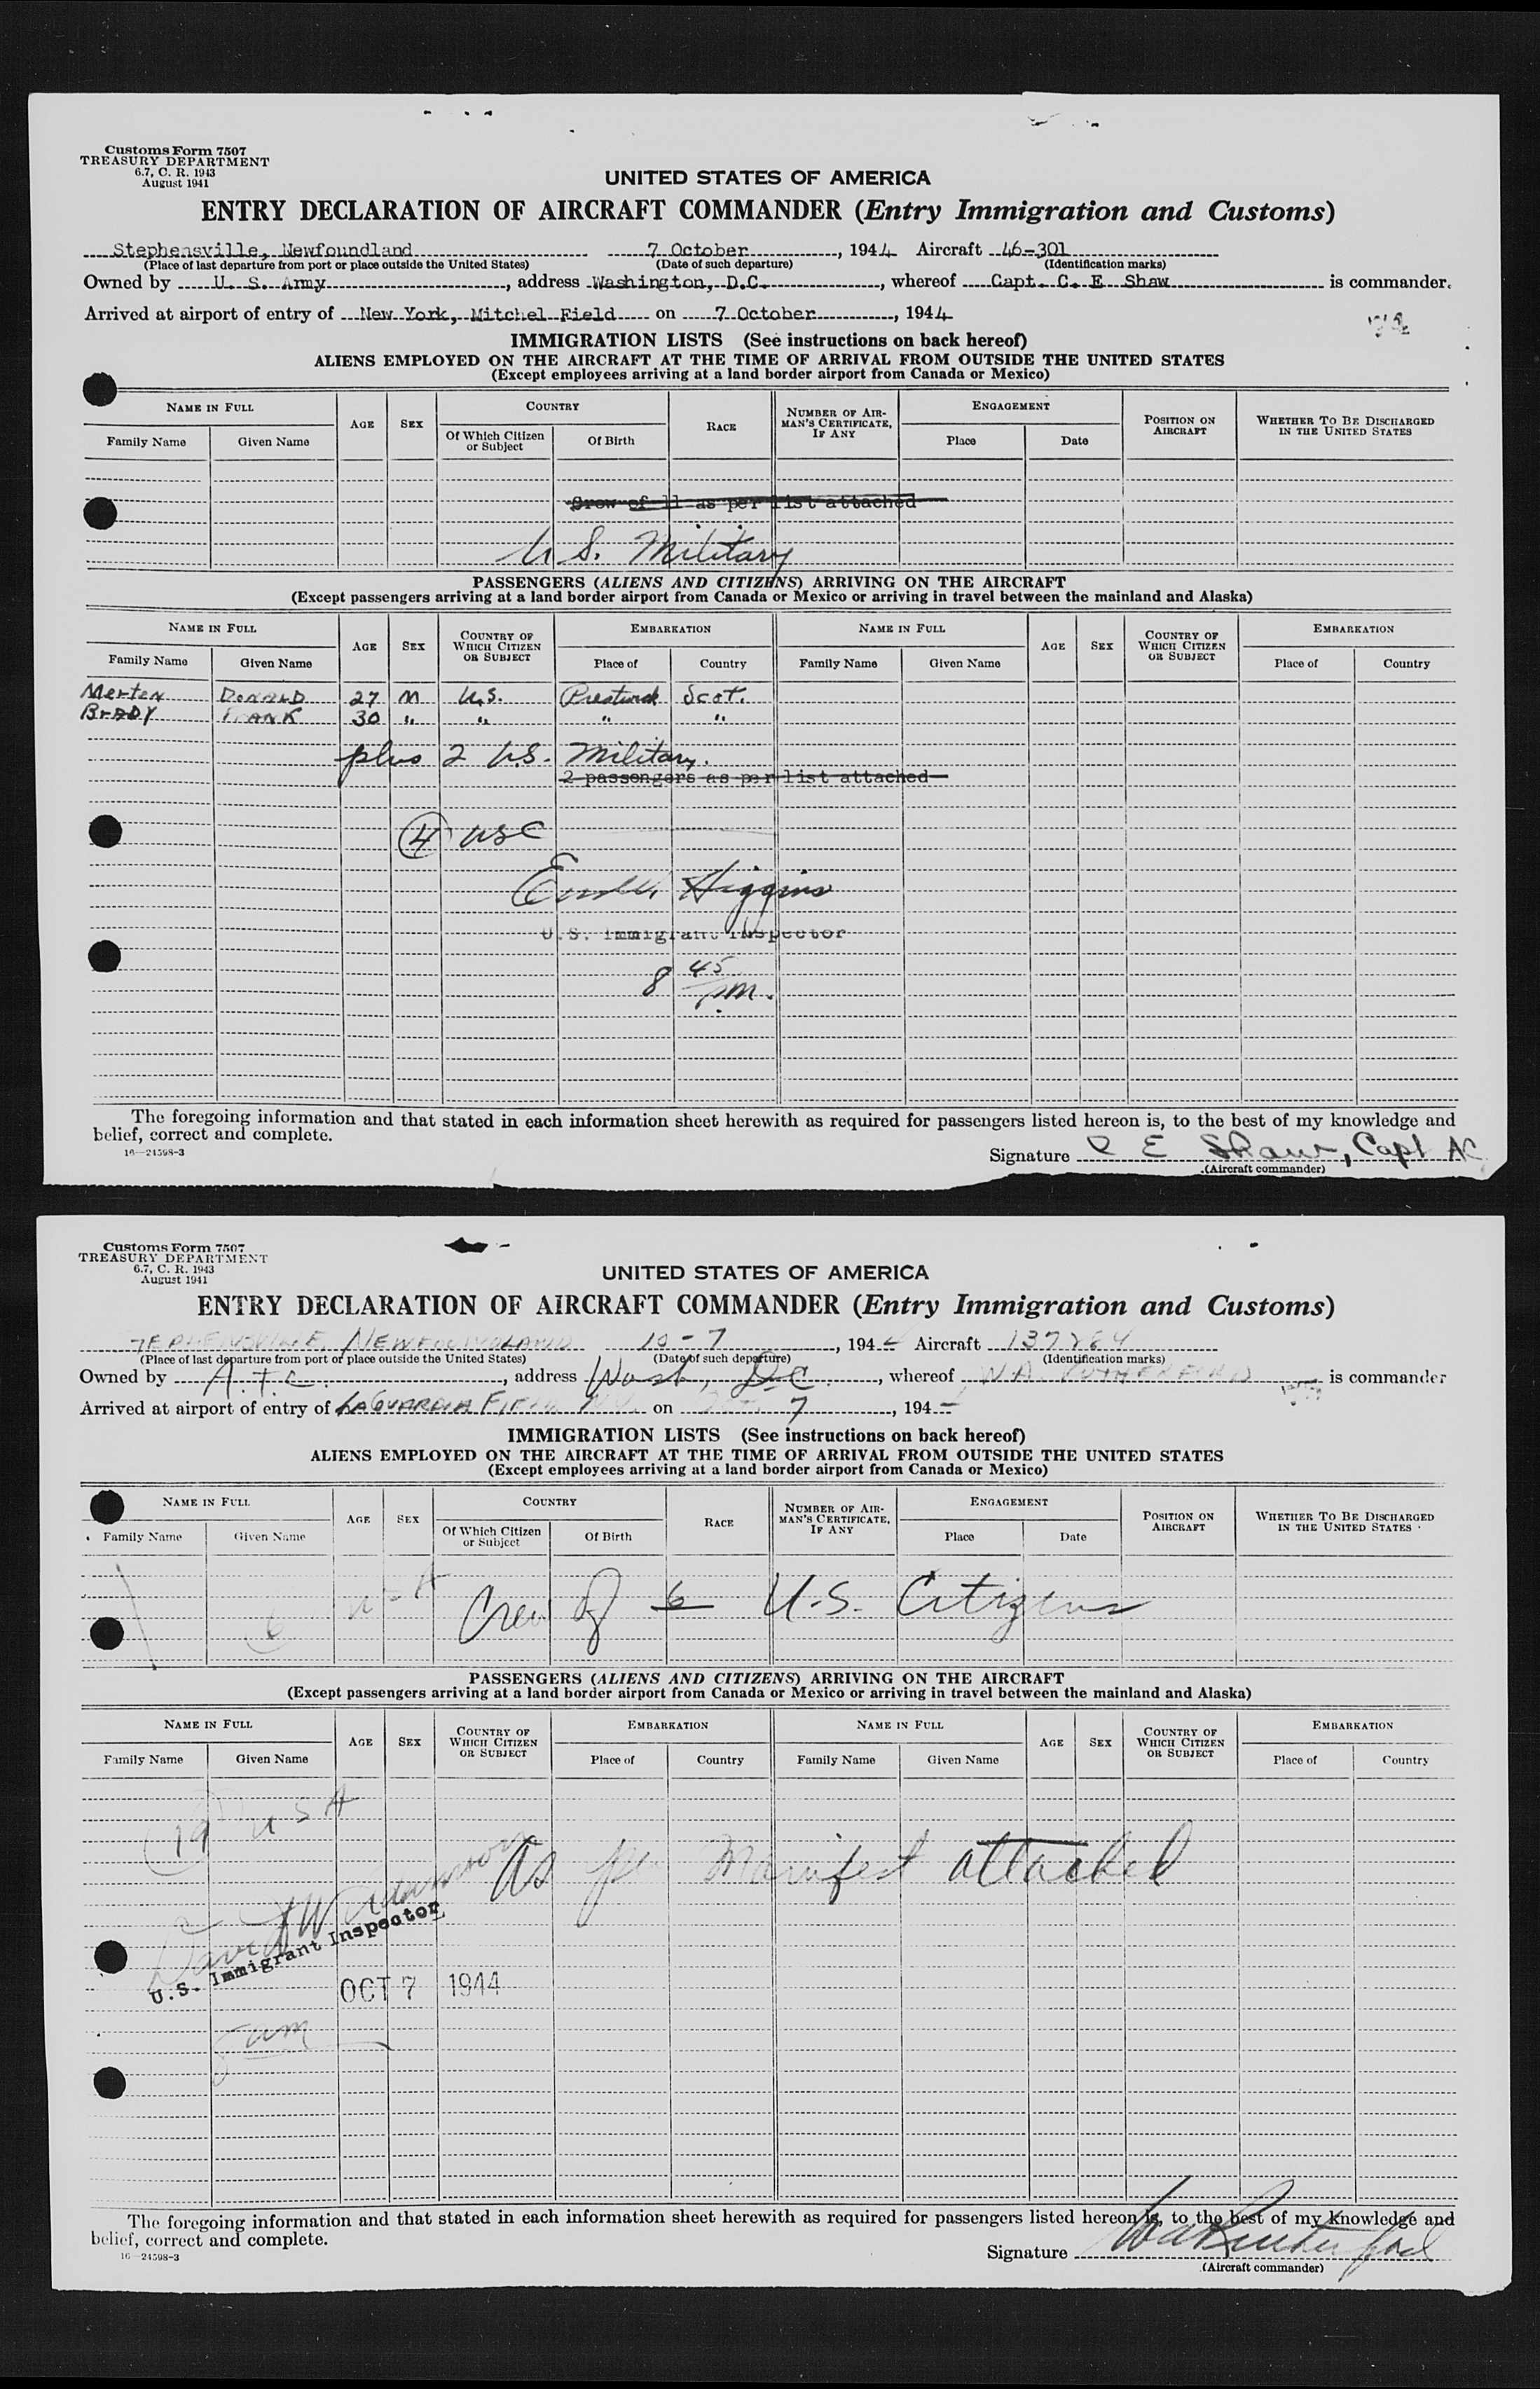 Customs Form 7507
TREASURY DEPARTMENT
6.7, C. R. 1943
August 1941
UNITED STATES OF AMERICA
ENTRY DECLARATION OF AIRCRAFT COMMANDER (Entry Immigration and Customs)
Stephensville, Newfoundland 7 October, 1944 Aircraft 46-301
(Place of last departure from port or place outside the United States) (Date of such departure) (Identification marks)
Owned by U. S. Army, address Washington, D.C., whereof Capt. C. E Shaw is commander.
Arrived at airport of entry of New York, Mitchel Field on 7 October, 1944
IMMIGRATION LISTS (See instructions on back hereof)
ALIENS EMPLOYED ON THE AIRCRAFT AT THE TIME OF ARRIVAL FROM OUTSIDE THE UNITED STATES
(Except employees arriving at a land border airport from Canada or Mexico)
NAME IN FULL AGE SEX COUNTRY RACE NUMBER OF AIR-MAN'S CERTIFICATE, IF ANY ENGAGEMENT POSITION ON AIRCRAFT WHETHER TO BE DISCHARGED IN THE UNITED STATES
Family Name Given Name Of Which Citizen or Subject Of Birth Place Date
Crew of 11 as per list attached
U S. Military
PASSENGERS (ALIENS AND CITIZENS) ARRIVING ON THE AIRCRAFT
(Except passengers arriving at a land border airport from Canada or Mexico or arriving in travel between the mainland and Alaska)
NAME IN FULL AGE SEX COUNTRY OF WHICH CITIZEN OR SUBJECT EMBARKATION NAME IN FULL AGE SEX COUNTRY OF WHICH CITIZEN OR SUBJECT EMBARKATION
Family Name Given Name Place of Country Family Name Given Name Place of Country
Merten DONALD 27 M U.S. Prestwick Scot.
BrADY FRANK 30 " " " "
plus 2 U.S. Military.
2 passengers as per list attached
4 USC
Higgins
U.S. Immigrant Inspector
8 45 pm.
The foregoing information and that stated in each information sheet herewith as required for passengers listed hereon is, to the best of my knowledge and
belief, correct and complete.
16—24598-3
Signature C E Shaw, Capt AC
(Aircraft commander)
Customs Form 7507
TREASURY DEPARTMENT
6.7, C. R. 1943
August 1941
UNITED STATES OF AMERICA
ENTRY DECLARATION OF AIRCRAFT COMMANDER (Entry Immigration and Customs)
TEPHENSVILLE, NEWFOUNDLAND 10-7, 194 Aircraft 137284
(Place of last departure from port or place outside the United States) (Date of such departure) (Identification marks)
Owned by A.T.C., address Wash, D.C., whereof W.A. RUTHERFORD is commander
Arrived at airport of entry of LAGUARDIA FIELD N.Y. on Oct. 7, 194
IMMIGRATION LISTS (See instructions on back hereof)
ALIENS EMPLOYED ON THE AIRCRAFT AT THE TIME OF ARRIVAL FROM OUTSIDE THE UNITED STATES
(Except employees arriving at a land border airport from Canada or Mexico)
NAME IN FULL AGE SEX COUNTRY RACE NUMBER OF AIR-MAN'S CERTIFICATE, IF ANY ENGAGEMENT POSITION ON AIRCRAFT WHETHER TO BE DISCHARGED IN THE UNITED STATES
Family Name Given Name Of Which Citizen or Subject Of Birth Place Date
6 Crew of 6 U.S. Citizens
PASSENGERS (ALIENS AND CITIZENS) ARRIVING ON THE AIRCRAFT
(Except passengers arriving at a land border airport from Canada or Mexico or arriving in travel between the mainland and Alaska)
NAME IN FULL AGE SEX COUNTRY OF WHICH CITIZEN OR SUBJECT EMBARKATION NAME IN FULL AGE SEX COUNTRY OF WHICH CITIZEN OR SUBJECT EMBARKATION
Family Name Given Name Place of Country Family Name Given Name Place of Country
19 USA
As per Manifest attached
David W Adamson
U.S. Immigrant Inspector
OCT 7 1944
am
The foregoing information and that stated in each information sheet herewith as required for passengers listed hereon is, to the best of my knowledge and
belief, correct and complete.
16—24598-3
Signature WA Rutherford
(Aircraft commander)